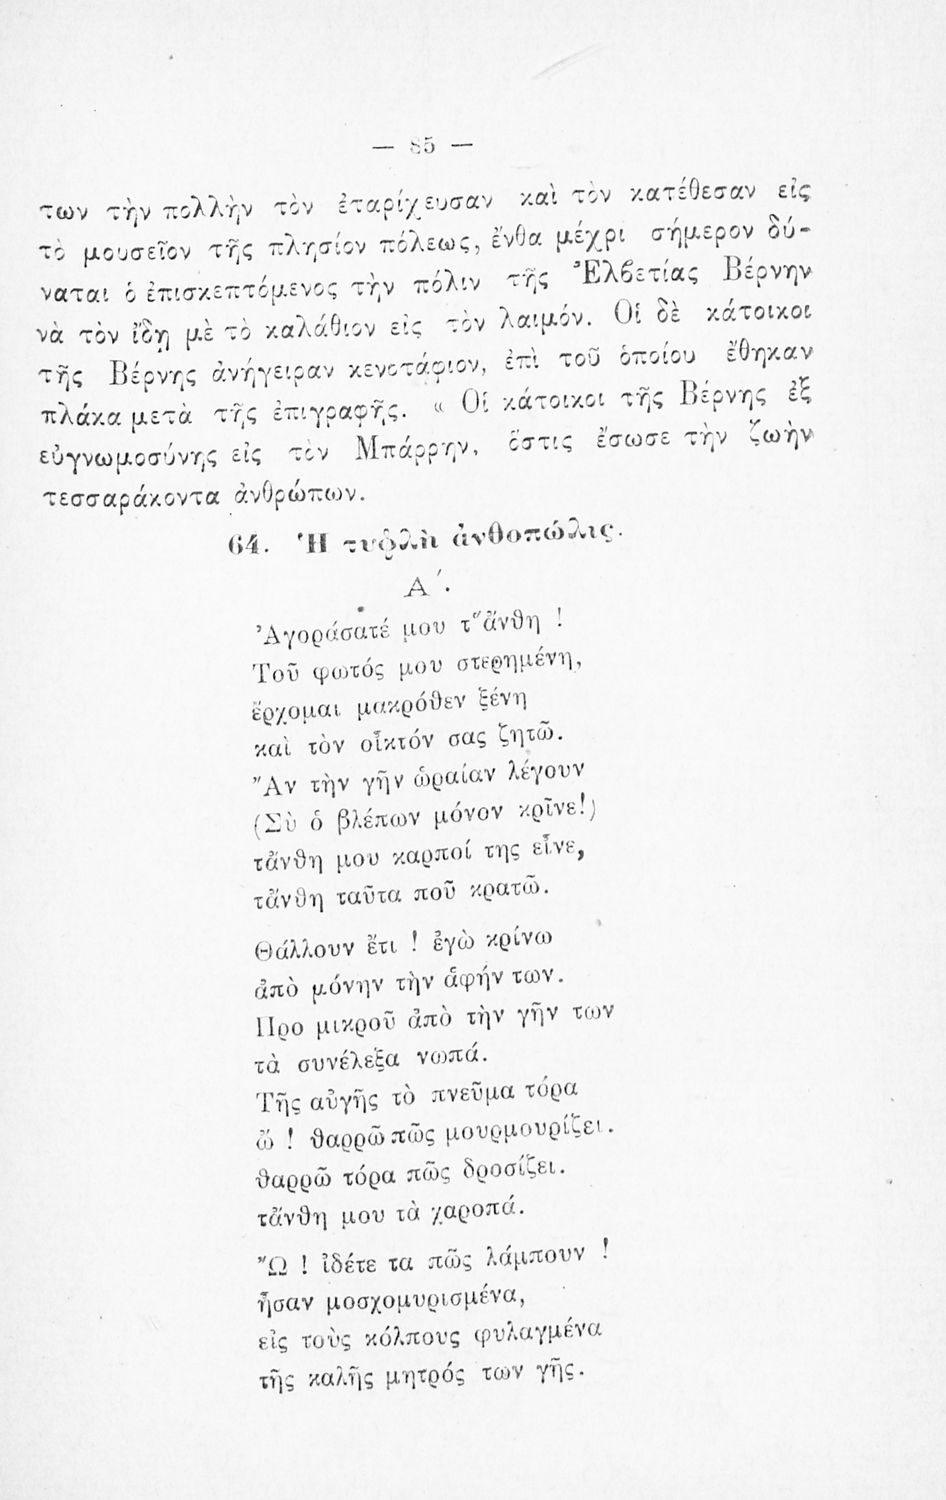 — 85 —
των τὴν πολλὴν τὸν ἐταρίχευσαν καὶ τὸν κατέθεσαν εἰς
τὸ μουσεῖον τῆς πλησίον πόλεως, ἔνθα μέχρι σήμερον δύ-
ναται ὁ ἐπισκεπτόμενος τὴν πόλιν τῆς Ἐλβετίας Βέρνην
νὰ τὸν ἴδῃ μὲ τὸ καλάθιον εἰς τὸν λαιμόν. Οἱ δὲ κάτοικοι
τῆς Βέρνης ἀνήγειραν κενοτάφιον, ἐπὶ τοῦ ὁποίου ἔθηκαν
πλάκα μετὰ τῆς ἐπιγραφῆς. « Οἱ κάτοικοι τῆς Βέρνης ἐξ
εὐγνωμοσύνης εἰς τὸν Μπάρρην, ὅστις ἔσωσε τὴν ζωὴν
τεσσαράκοντα ἀνθρώπων.
64. Ἡ τυφλὴ ἀνθοπώλις.
Α΄.
Ἀγοράσατέ μου τ' ἄνθη !
Τοῦ φωτός μου στερημένη,
ἔρχομαι μακρόθεν ξένη
καὶ τὸν οἶκτόν σας ζητῶ.
Ἂν τὴν γῆν ὡραίαν λέγουν
(Σὺ ὁ βλέπων μόνον κρῖνε!)
τἄνθη μου καρποί της εἶνε,
τἄνθη ταῦτα ποῦ κρατῶ.
Θάλλουν ἔτι ! ἐγὼ κρίνω
ἀπὸ μόνην τὴν ἁφήν των.
Προ μικροῦ ἀπὸ τὴν γῆν των
τὰ συνέλεξα νωπά.
Τῆς αὐγῆς τὸ πνεῦμα τόρα
ὤ ! θαρρῶ πῶς μουρμουρίζει.
θαρρῶ τόρα πῶς δροσίζει.
τἄνθη μου τὰ χαροπά.
Ὢ ! ἰδέτε τα πῶς λάμπουν !
ἦσαν μοσχομυρισμένα,
εἰς τοὺς κόλπους φυλαγμένα
τῆς καλῆς μητρός των γῆς.